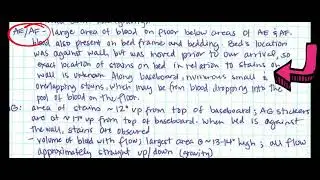 AE/AF - large area of blood on floor below areas of AE & AF.
blood also present on bed frame and bedding. Bed's location
was against wall, but was moved prior to our arrival, so
exact location of stains on bed in relation to stains on
wall is unknown. Along baseboard, numerous small
overlapping stains, which may be from blood dropping into the
pool of blood on the floor.
G: area of stains ~12" up from top of baseboard; AG stickers
are at ~17" up from top of baseboard. When bed is against
the wall, stains are obscured
- volume of blood with flow; largest area @ ~13-14" high; all flow
approximately straight up/down (gravity)